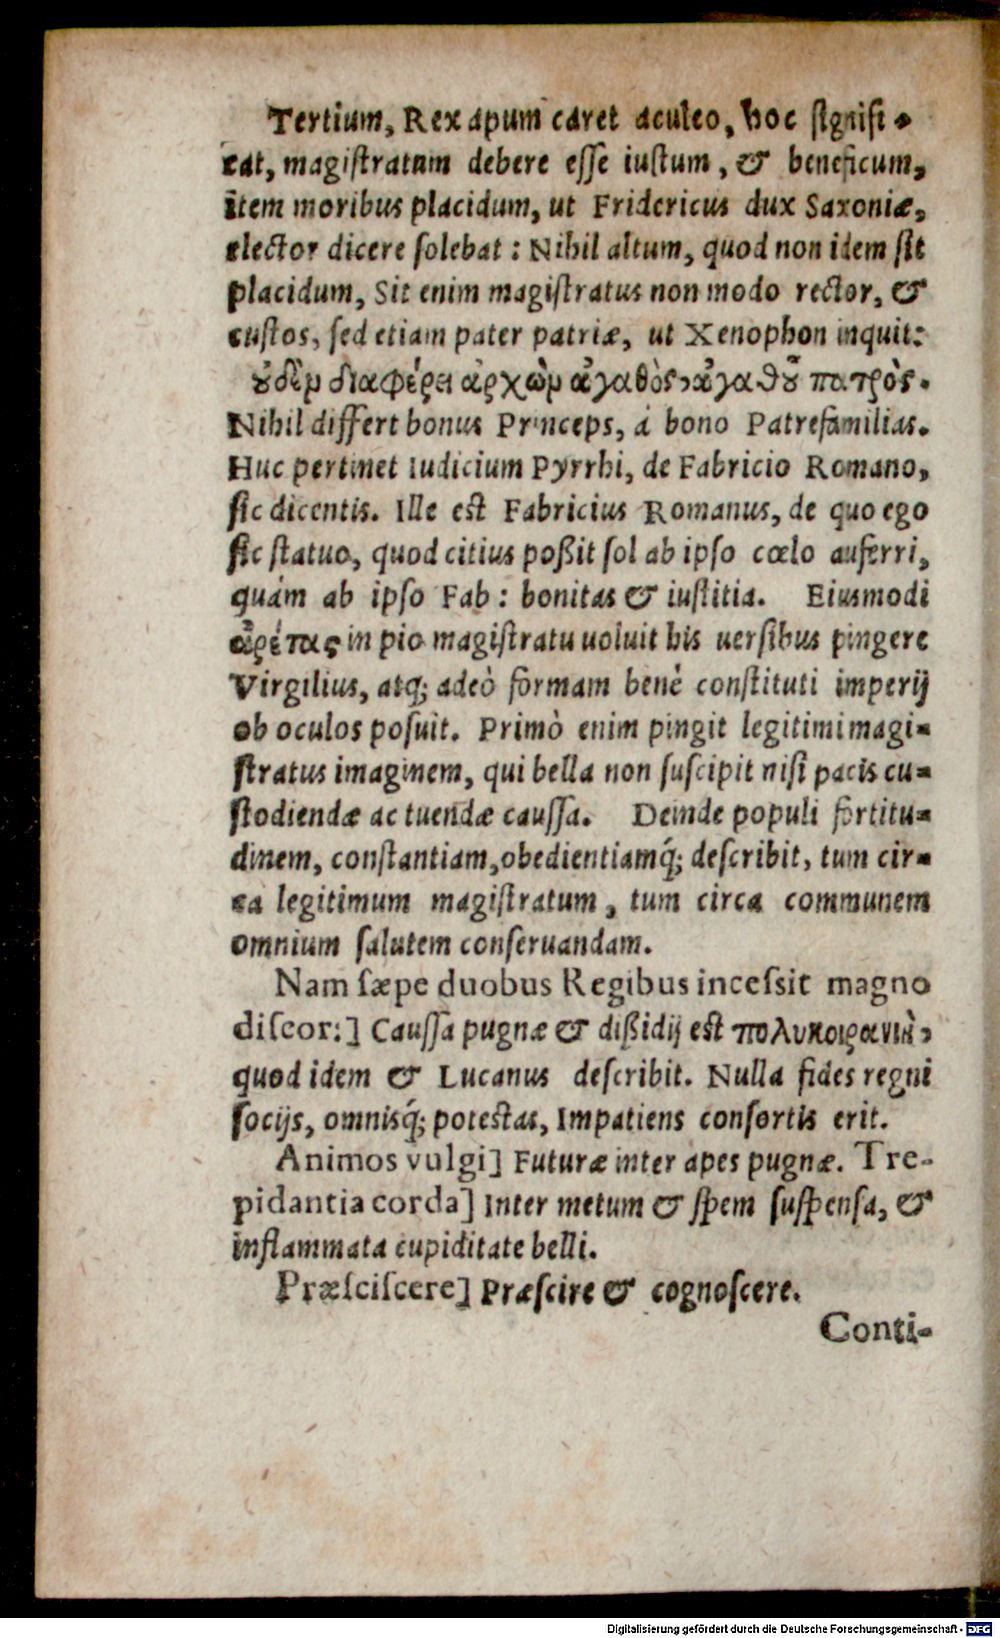 Tertium, Rex apum caret aculeo, hoc signifi-
cat, magistratum debere esse iustum, & beneficum,
item moribus placidum, ut Fridericus dux Saxoniæ,
elector dicere solebat: Nihil altum, quod non idem sit
placidum, Sit enim magistratus non modo rector, &
custos, sed etiam pater patriæ, ut Xenophon inquit:
ὀυδὲν διαφέρει ἀρχὼν ἀγαθὸς, ἀγαθοῦ πατρὸς.
Nihil differt bonus Princeps, á bono Patrefamilias.
Huc pertinet Iudicium Pyrrhi, de Fabricio Romano,
sic dicentis. Ille est Fabricius Romanus, de quo ego
sic statuo, quod citius poßit sol ab ipso cœlo auferri,
quám ab ipso Fab: bonitas & iustitia. Eiusmodi
ἀρέτας in pio magistratu uoluit his uersibus pingere
Virgilius, atq; adeò formam benè constituti imperij
ob oculos posuit. Primò enim pingit legitimi magi-
stratus imaginem, qui bella non suscipit nisi pacis cu-
stodiendæ ac tuendæ caussa. Deinde populi fortitu-
dinem, constantiam, obedientiamq́; describit, tum cir-
ca legitimum magistratum, tum circa communem
omnium salutem conseruandam.
Nam sæpe duobus Regibus incessit magno
discor:] Caussa pugnæ & dißidij est πολυκοιρανιὰ,
quod idem & Lucanus describit. Nulla fides regni
socijs, omnisq́; potestas, Impatiens consortis erit.
Animos vulgi] Futuræ inter apes pugnæ. Tre-
pidantia corda] Inter metum & spem suspensa, &
inflammata cupiditate belli.
Præsciscere] Præscire & cognoscere.
Conti-
Digitalisierung gefördert durch die Deutsche Forschungsgemeinschaft - DFG